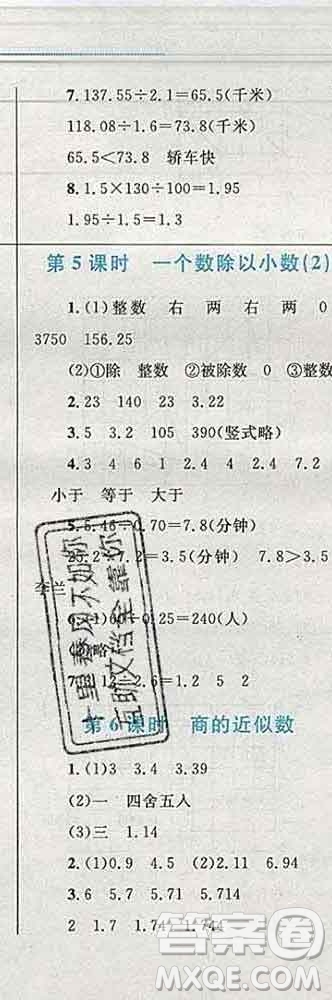 7.137.55÷2.1=65.5(千米)
118.08÷1.6=73.8(千米)
65.5<73.8 轿车快
8.1.5×130÷100=1.95
1.95÷1.5=1.3
第5课时 一个数除以小数(2)
1.(1)整数 右 两 右 两 0
3750 156.25
(2)①除 整数 ②被除数 0 ③整数
2.23 140 23 3.22
3.5 3.2 105 390(竖式略)
4.3 4 6 1 2.4 4 2.4 7.2
小于 等于 大于
5.5.46÷0.70=7.8(分钟)
÷7.2=3.5(分钟) 7.8>3.5
李兰
÷0.125=240(人)
1.2 5 2
第6课时 商的近似数
1.(1)3 3.4 3.39
(2)一 四舍五入
(3)三 1.14
2.(1)0.9 4.5 (2)2.11 6.94
3.6 5.7 5.71 5.714
2 1.7 1.74 1.744
七里春风不如你
互助文档全靠你
答案圈
MXQE.COM